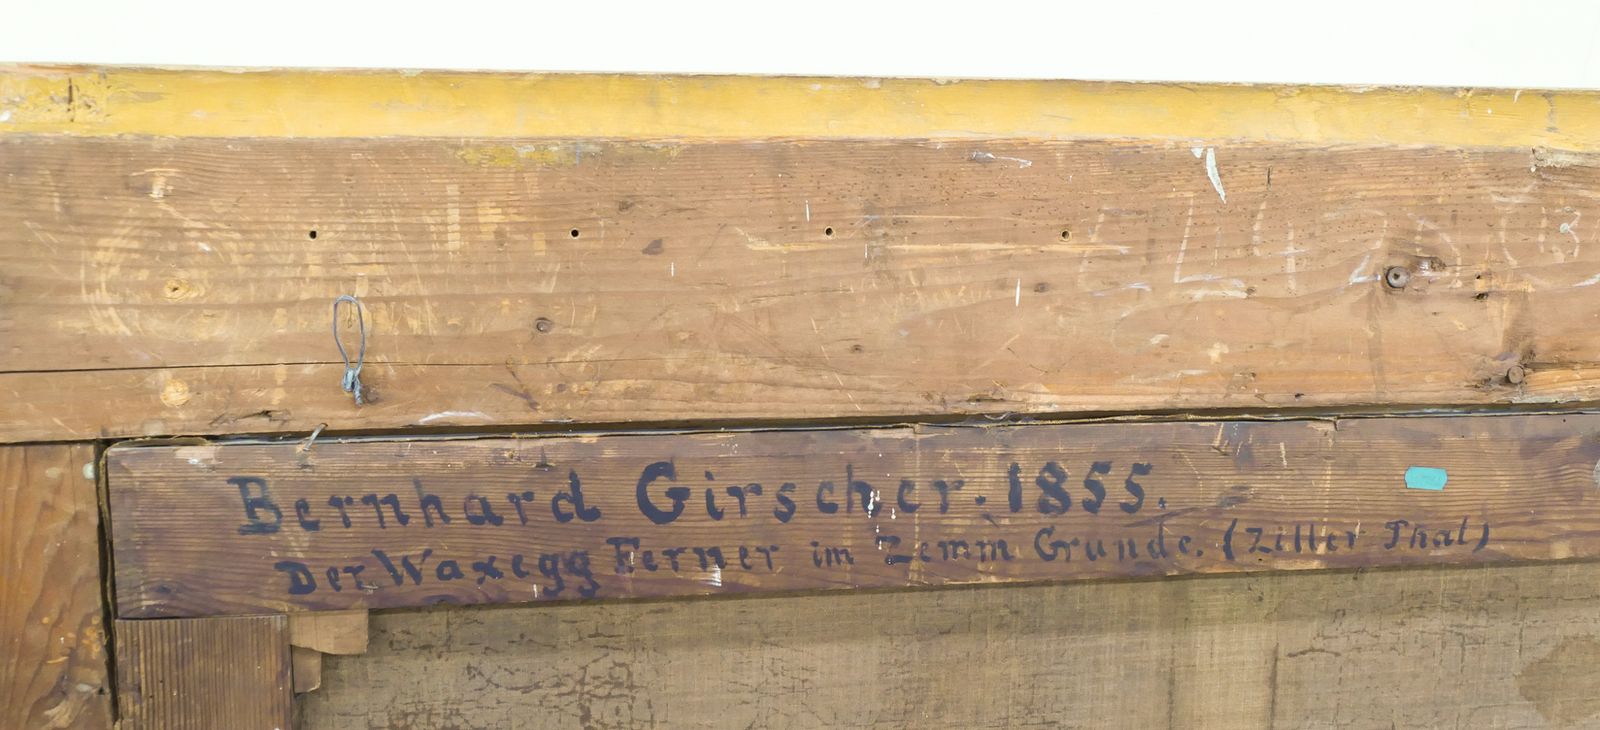 Bernhard Girscher. 1855.
Der Waxegg Ferner im Zemm Grunde. (Ziller Thal)